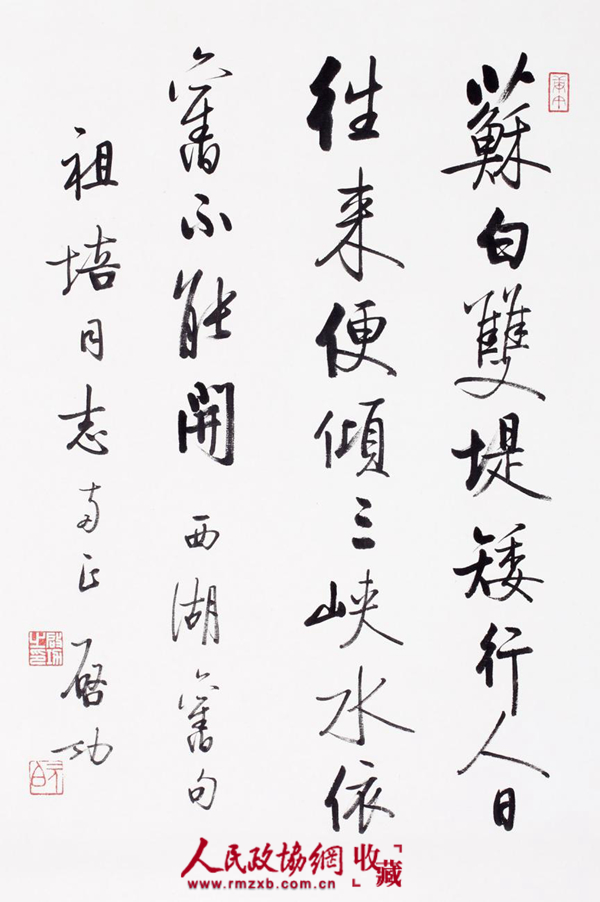 蘇白雙堤矮行人日
往来便傾三峽水依
舊不能開 西湖舊句
祖培同志正 启功
啟功之印
元白
人民政協網 收藏
www.rmzxb.com.cn